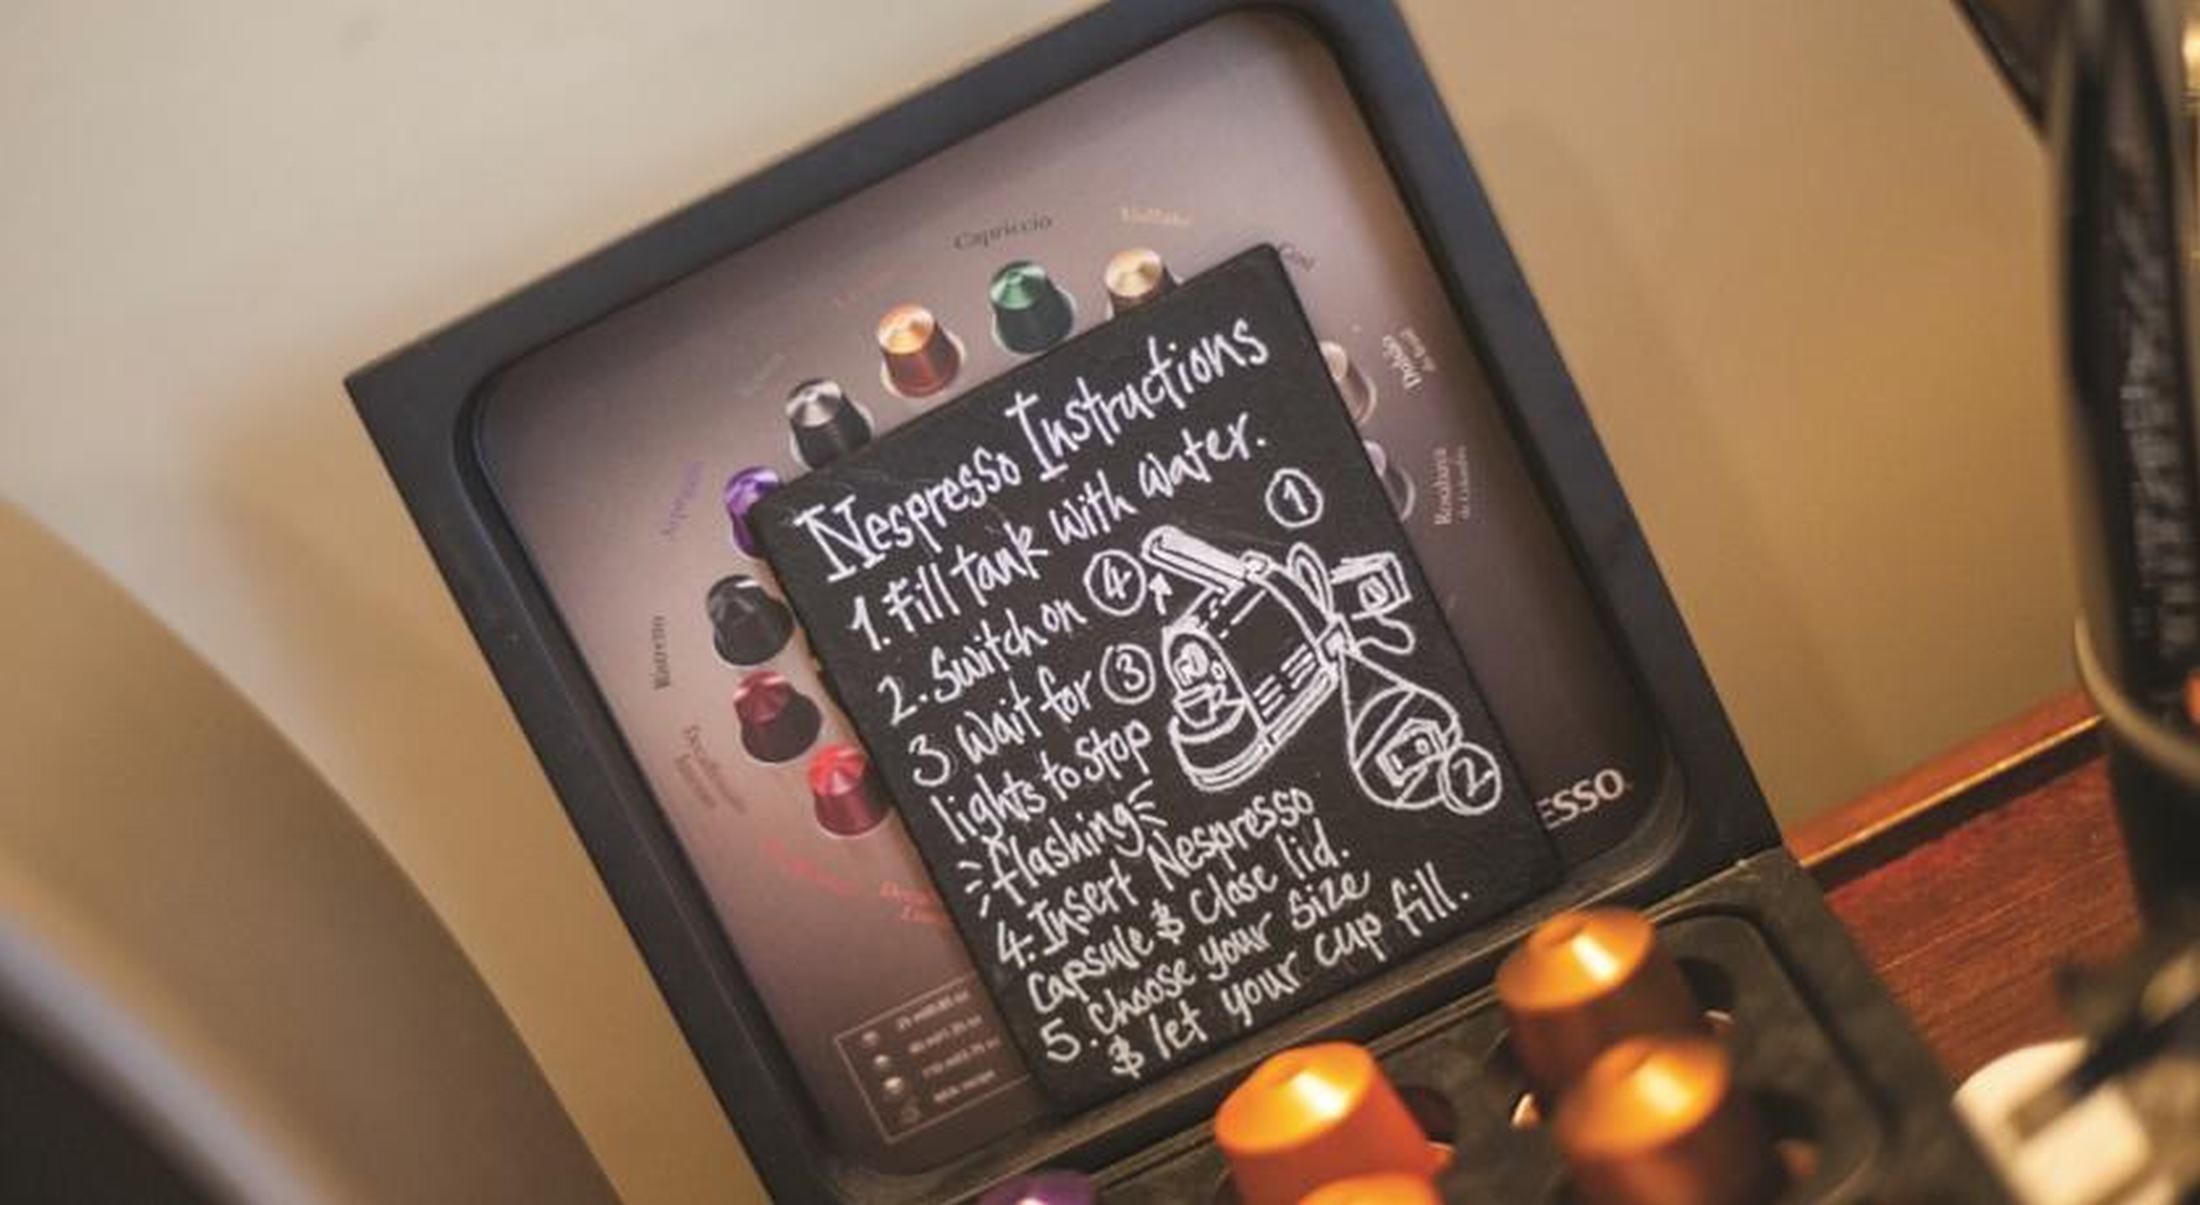 Capriccio
Volluto
Cosi
Dulsão
do Brasil
Rosabaya
de Colombia
Arpeggio
Ristretto
Decaffeinato
Intenso
Nespresso Instructions
1. Fill tank with water.
2. Switch on
3 Wait for
lights to stop
flashing
4. Insert Nespresso
Capsule & Close lid.
5. Choose your Size
& let your cup fill.
1
4
3
2
ESSO.